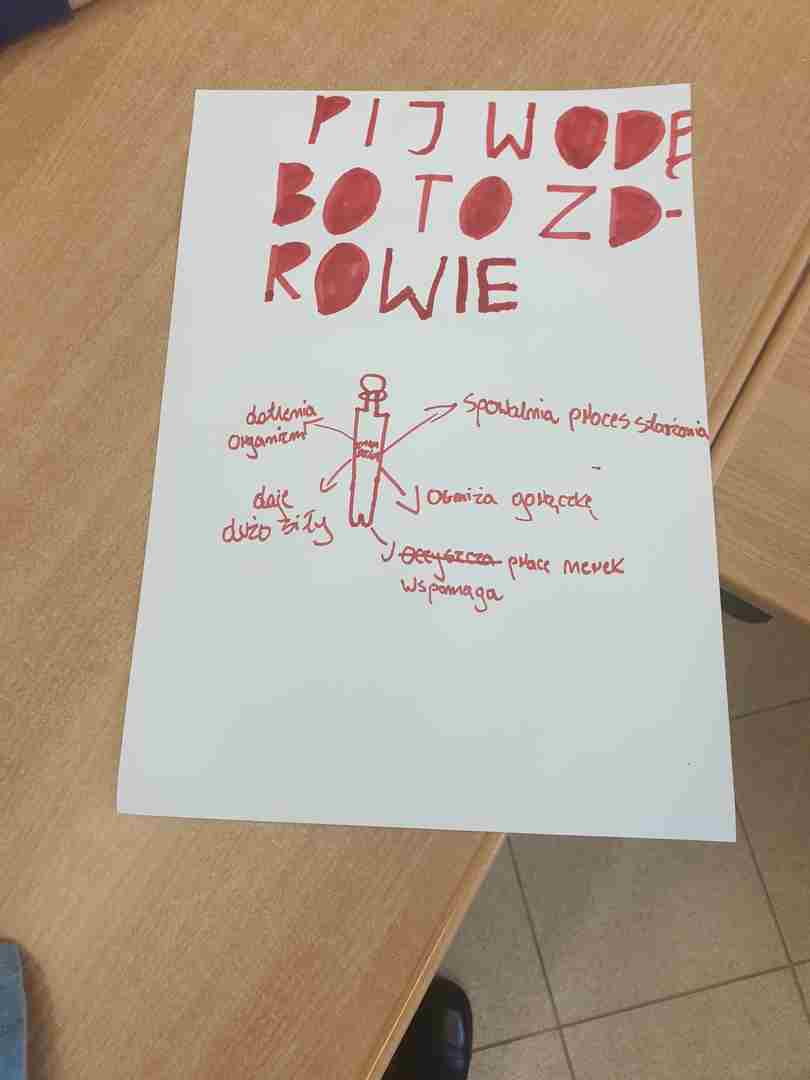 PIJ WODĘ
BO TO ZD-
ROWIE
dotlenia
organizm
spowalnia proces starzenia
daje
dużo siły
obniża gorączkę
Oczyszcza pracę nerek
wspomaga